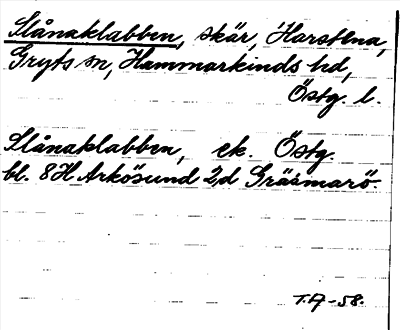 Slånaklabben, skär, Harstena,
Gryts sn, Hammarkinds hd,
Östg. l.
Slånaklabben, ek. Östg.
bl. 8H Arkösund 2,d Gräsmarö.
T.A-58.